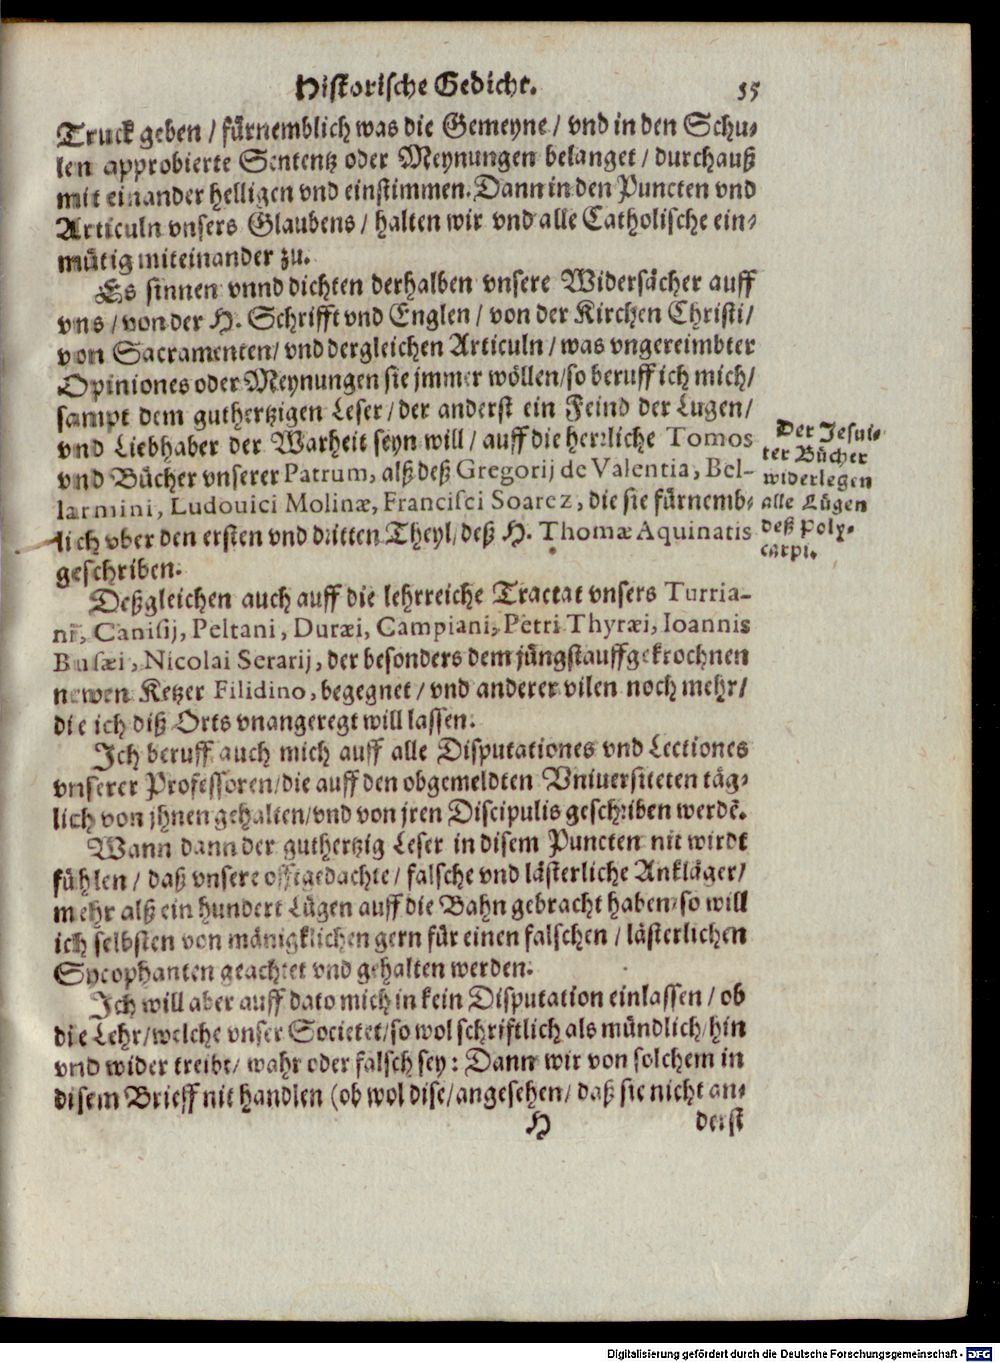 Historische Gedicht. 55
Truck geben / fürnemblich was die Gemeyne / vnd in den Schu-
len approbierte Sententz oder Meynungen belanget / durchauß
mit einander helligen vnd einstimmen. Dann in den Puncten vnd
Articuln vnsers Glaubens / halten wir vnd alle Catholische ein-
mütig miteinander zu.
Es sinnen vnnd dichten derhalben vnsere Widersächer auff
vns / von der H. Schrifft vnd Englen / von der Kirchen Christi /
von Sacramenten / vnd dergleichen Articuln / was vngereimbter
Opiniones oder Meynungen sie jmmer wöllen / so beruff ich mich /
sampt dem guthertzigen Leser / der anderst ein Feind der Lugen /
vnd Liebhaber der Warheit seyn will / auff die herrliche Tomos
vnd Bücher vnserer Patrum, alß deß Gregorij de Valentia, Bel-
larmini, Ludouici Molinæ, Francisci Soarez, die sie fürnemb-
lich vber den ersten vnd dritten Theyl / deß H. Thomæ Aquinatis
geschriben.
Der Jesui-
ter Bücher
widerlegen
alle Lügen
deß Poly-
carpi.
Deßgleichen auch auff die lehrreiche Tractat vnsers Turria-
ni, Canisij, Peltani, Duræi, Campiani, Petri Thyræi, Ioannis
Busæi, Nicolai Serarij, der besonders dem jüngst auffgekrochnen
newen Ketzer Filidino, begegnet / vnd anderer vilen noch mehr /
die ich diß Orts vnangeregt will lassen.
Ich beruff auch mich auff alle Disputationes vnd Lectiones
vnserer Professoren / die auff den obgemeldten Vniuersiteten täg-
lich von jhnen gehalten / vnd von jren Discipulis geschriben werdē.
Wann dann der guthertzig Leser in disem Puncten nit wirdt
fühlen / daß vnsere offtgedachte / falsche vnd lästerliche Ankläger /
mehr alß ein hundert Lügen auff die Bahn gebracht haben / so will
ich selbsten von mänigklichen gern für einen falschen / lästerlichen
Sycophanten geachtet vnd gehalten werden.
Ich will aber auff dato mich in kein Disputation einlassen / ob
die Lehr / welche vnser Societet / so wol schriftlich als mündlich / hin
vnd wider treibt / wahr oder falsch sey : Dann wir von solchem in
disem Brieff nit handlen (ob wol dise / angesehen / daß sie nicht an-
H derst
Digitalisierung gefördert durch die Deutsche Forschungsgemeinschaft - DFG